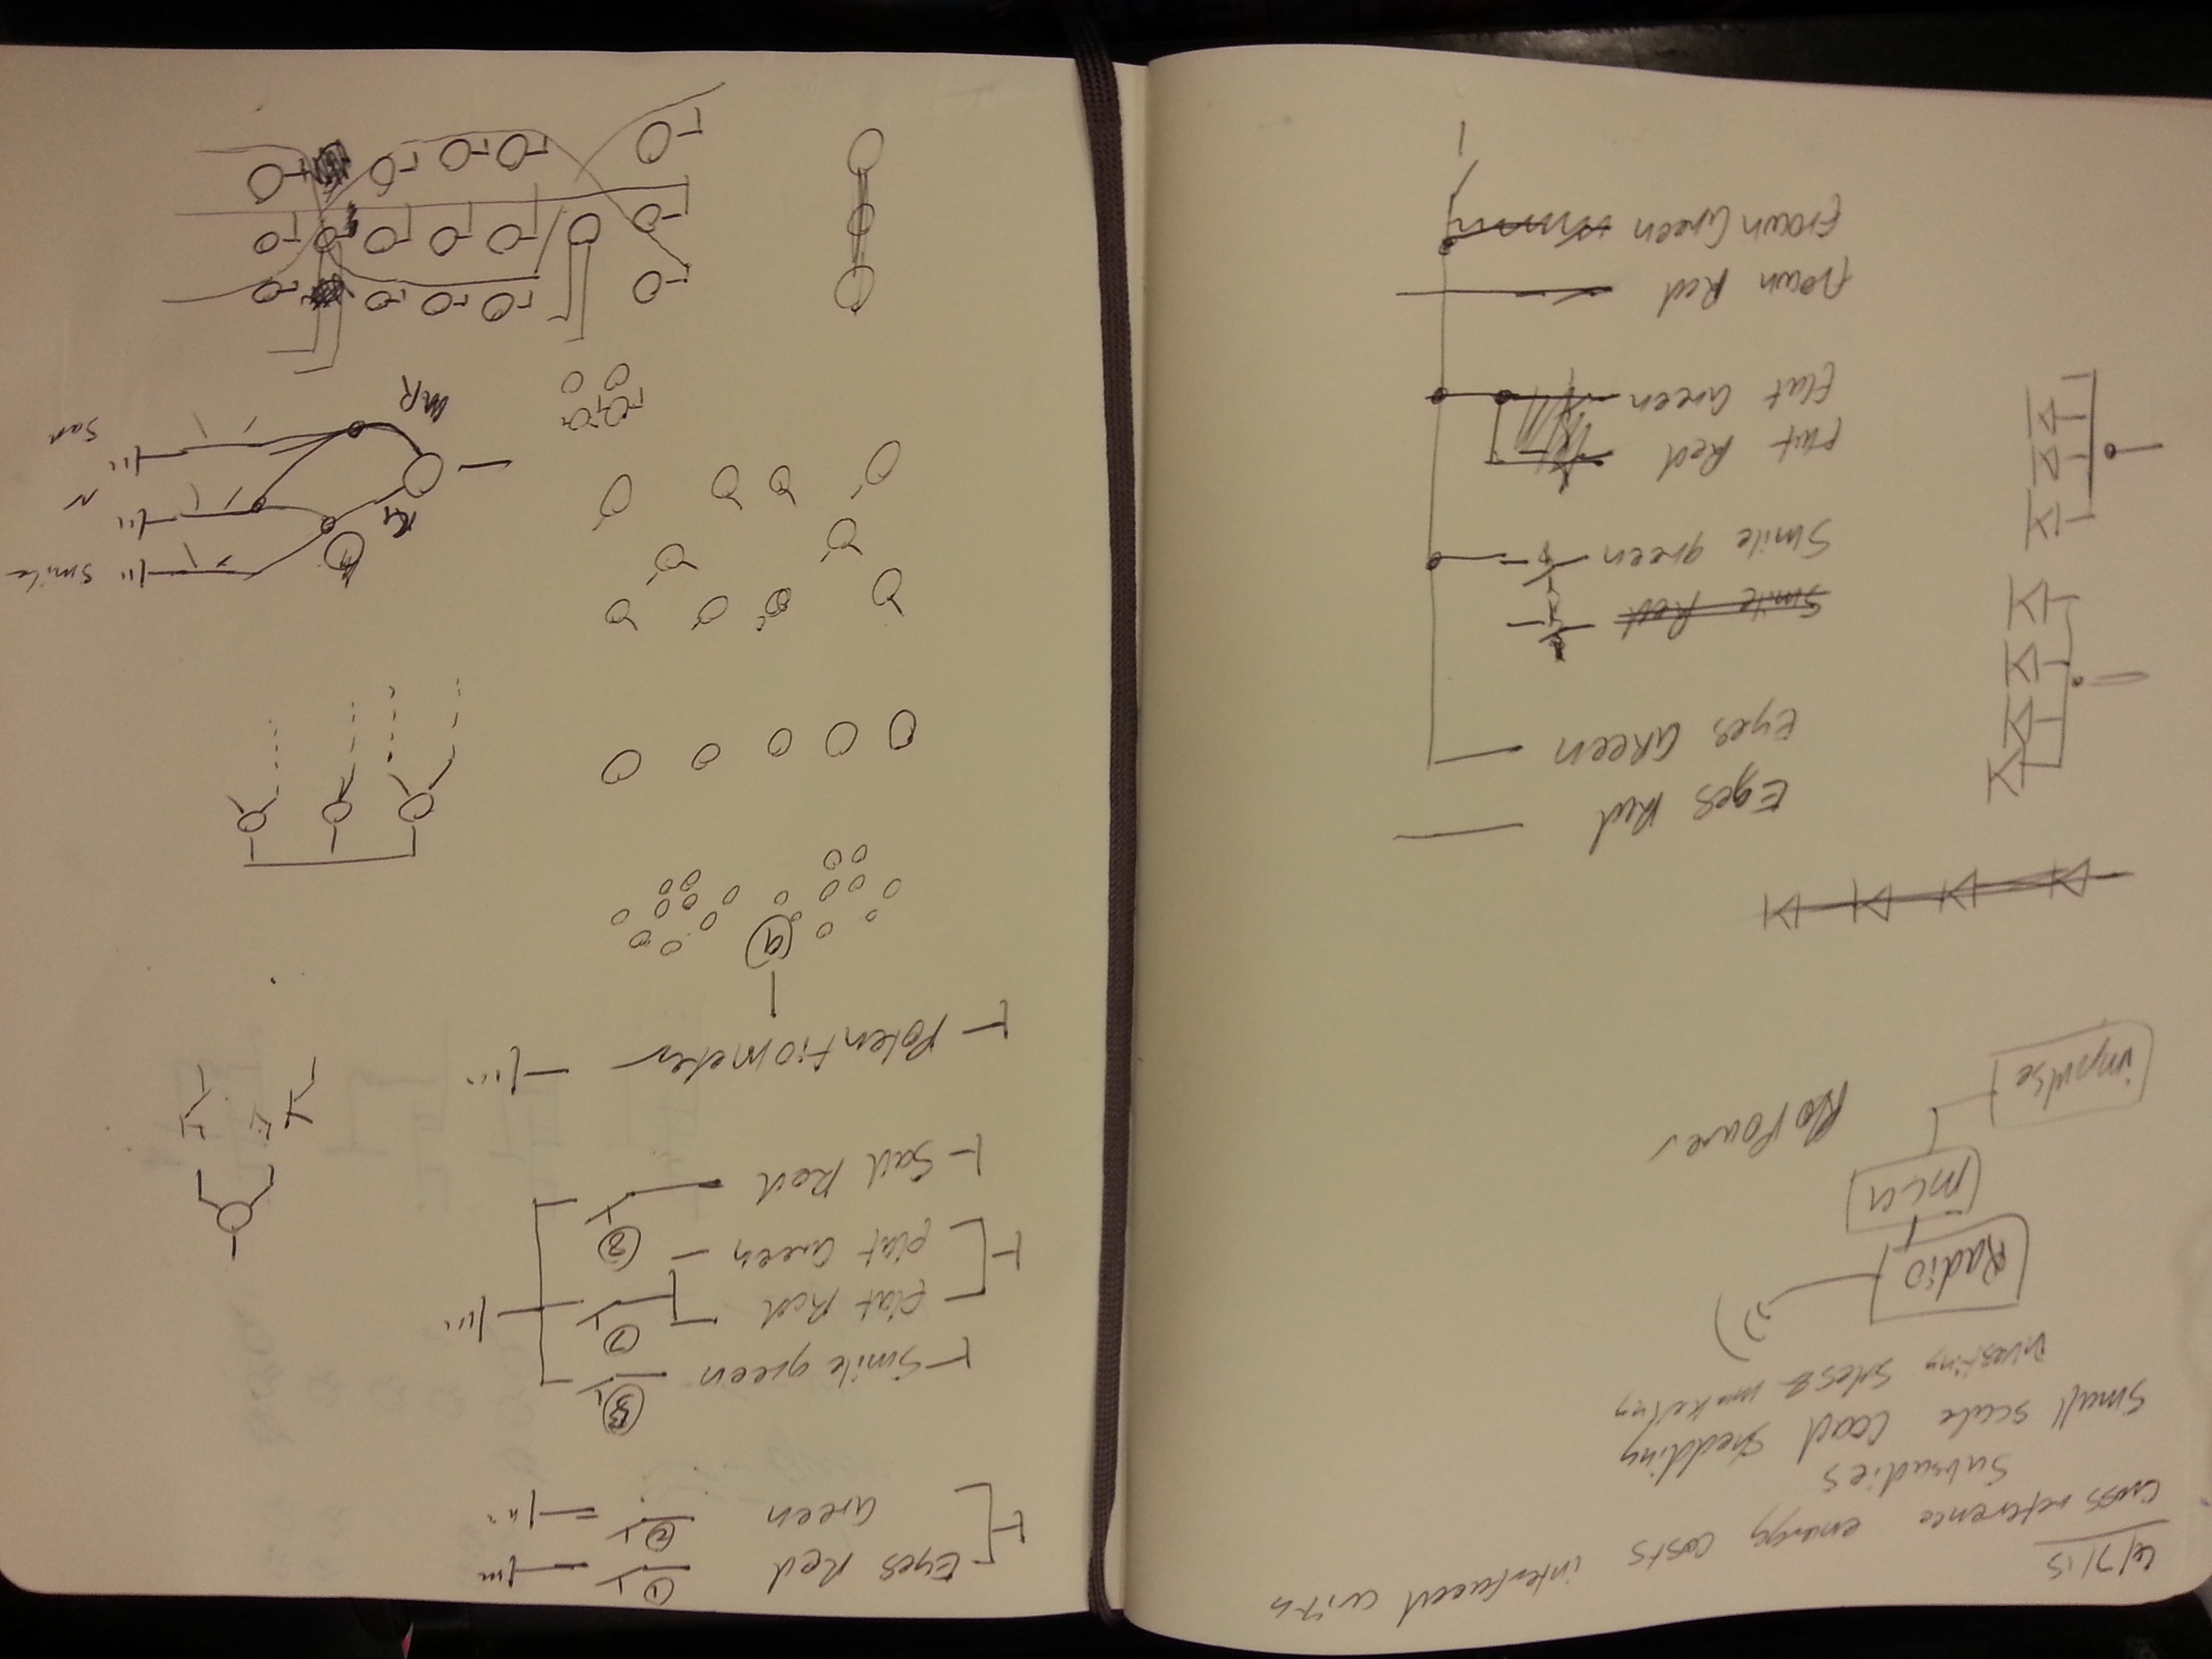 6/7/15
Cross reference energy costs interfaced with
Subsudies
Small scale Load Shedding
investing Sales & marketing
Radio
MCU
impulse
RoPower
Eyes Red
Eyes GReen
Smile Red
Smile green
Flat Red
flat Green
frown Red
frown Green
Eyes Red 1
Green 2
Smile green
flat Red 7
flat Green
8
Sad Red
Potentiometer
9
Smile
N
MR